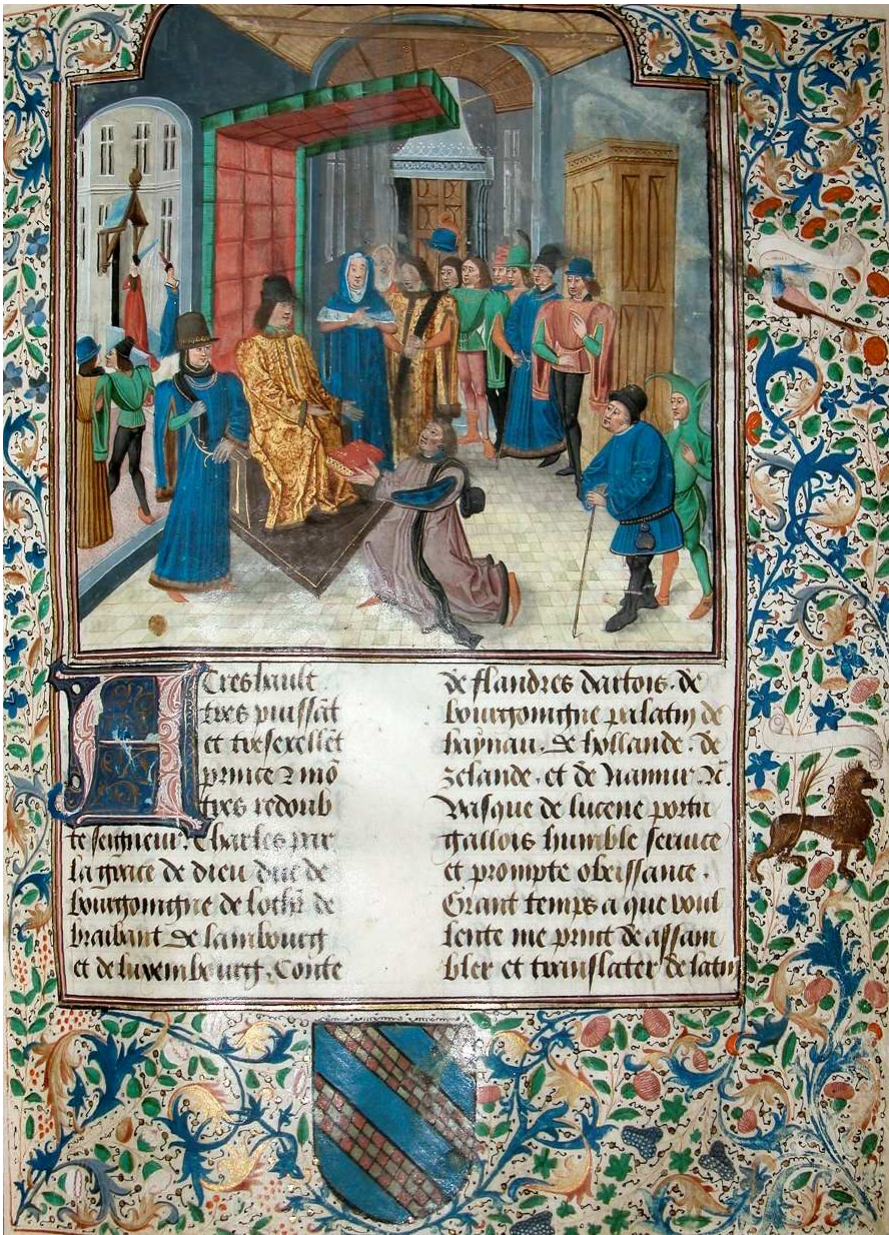 A Treshault
tres puissāt
et tresexellēt
prince & mō
tres redoub
te seigneur. Charles par
la grace de dieu duc de
bourgoingne de lothr̄ de
braibant De lambourg
et de luxembourg, Conte
de flandres dartois. de
bourgoingne palatin de
haynau. De hollande. de
zelande. et de Namur. &c̄.
Vasque de lucene portu
gallois humble seruice
et prompte obeissance.
Grant temps a que voul
lente me print de assam
bler et translater de latin